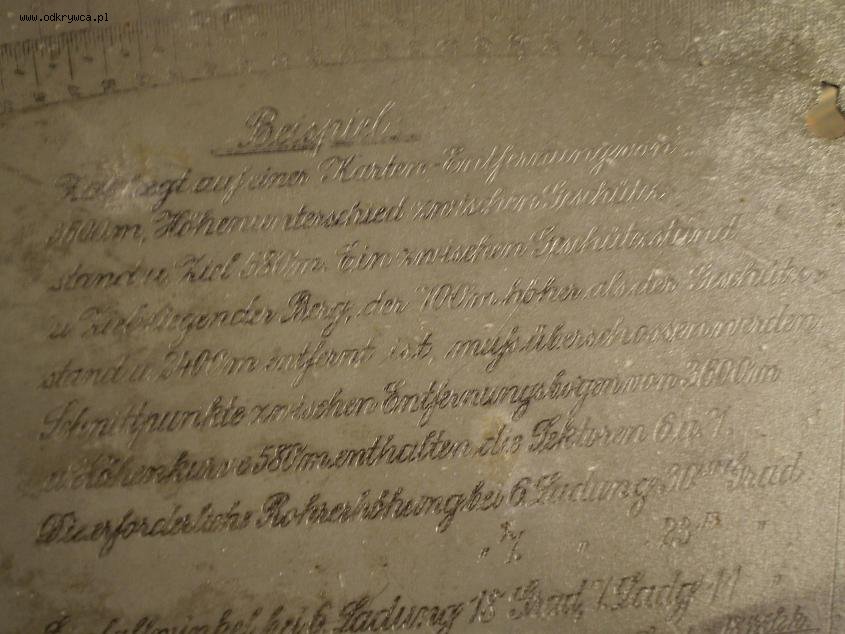 www.odkrywca.pl
Beispiel
Ziel liegt auf einer Karten-Entfernung von
3600m, Höhenunterschied zwischen Geschütz-
stand u. Ziel 580m. Ein zwischen Geschützstand
u. Ziel liegender Berg, der 700m höher als der Geschütz-
stand u. 2400m entfernt ist, muß überschossen werden
Schnittpunkte zwischen Entfernungsbogen von 3600m
u. Höhenkurve 580m enthalten die Sektoren 6 u. 7.
Die erforderliche Rohrerhöhung bei 6. Ladung 30 Grad
" 7. " 23 "
bei 6. Ladung 18 Grad, 7. Ladg. 11 "